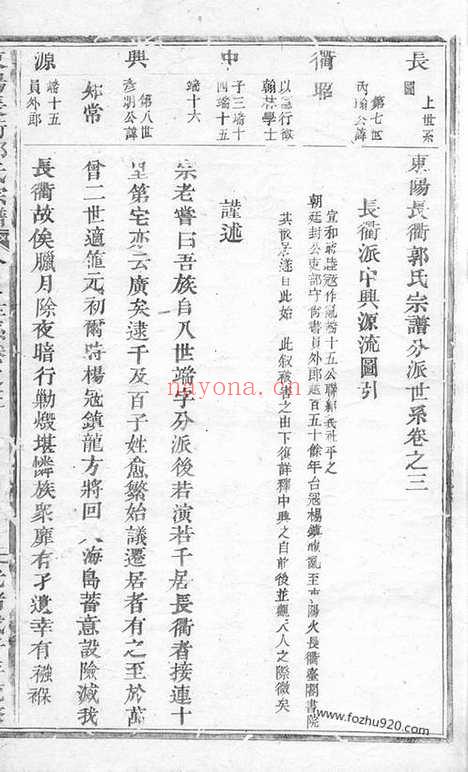 東陽長衢郭氏宗譜分派世系卷之三
長衢派中興源流圖引
宣和睦寇作亂端十五公聯鄉義社平之
朝廷封公吏部守尚書員外郎越百五十餘年台冦楊鎮龍亂至東陽火長衢臺閣書院
其散居遂自此始 此叙總書之由下復詳釋中興之自前後並觀天人之際微矣
謹述
宗老嘗曰吾族自八世端字分派後若演若千居長衢者接連十
里第宅亦云廣矣逮千及百子姓愈繁始議遷居者有之至於萬
曾二世適值元初爾時楊冦鎮龍方將回入海島蓄意設險滅我
長衢故俟臘月除夜暗行勦燬堪憐族衆靡有孑遺幸有襁褓
長 衢 中 興 源
圖
上世系
第七世
昭
以德行徵
翰林學士
子三端十
四端十五
端十六
第八世
彥明公諱
知常
端十五
員外郎
nayona.cn
www.fozhu920.com